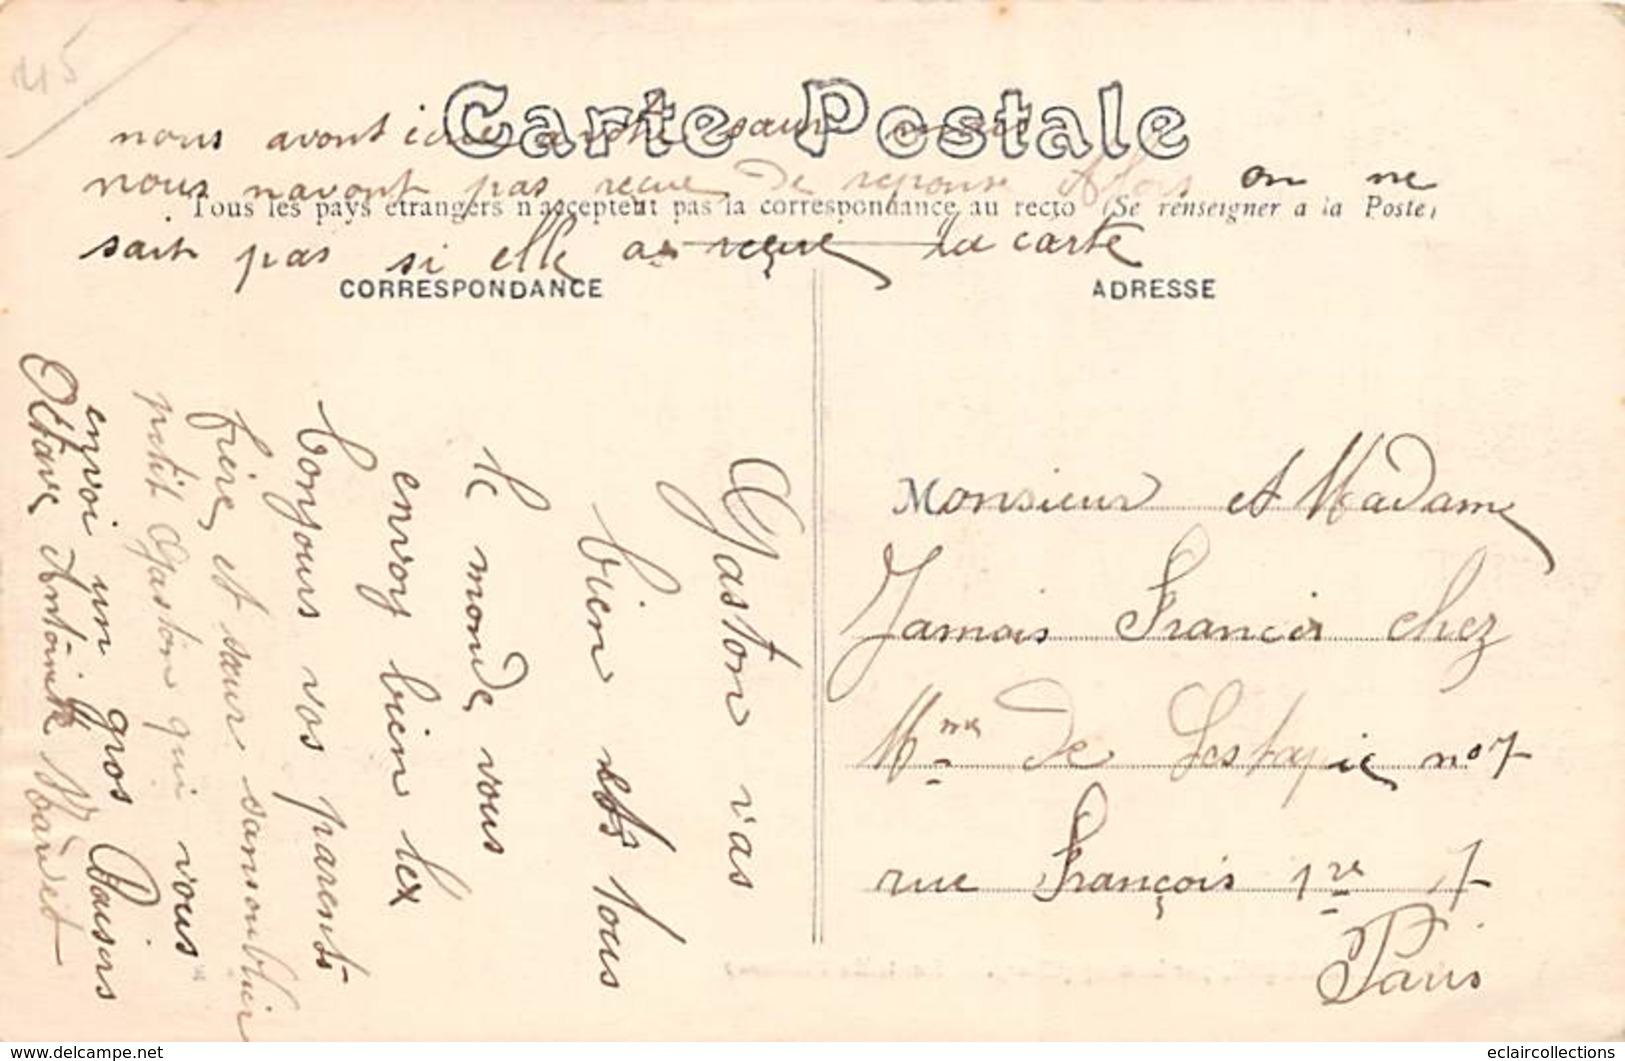 45
Carte Postale
nous avont
nous navont pas reçue de reponse Alors on ne
Tous les pays étrangers n'acceptent pas la correspondance au recto (Se renseigner à la Poste)
sait pas si elle as reçue la carte
CORRESPONDANCE
ADRESSE
Gaston vas
bien ets tous
le monde vous
envoy bien lex
bonjours vos parents
frère et sœur sansoublier
petit Gaston qui vous
envoi un gros Baisers
Octave Antoinette
Monsieur et Madame
Jamois Francis chez
Mme de Lestapie no 7
rue François 1re 7
Paris
eclaircollections
www.delcampe.net